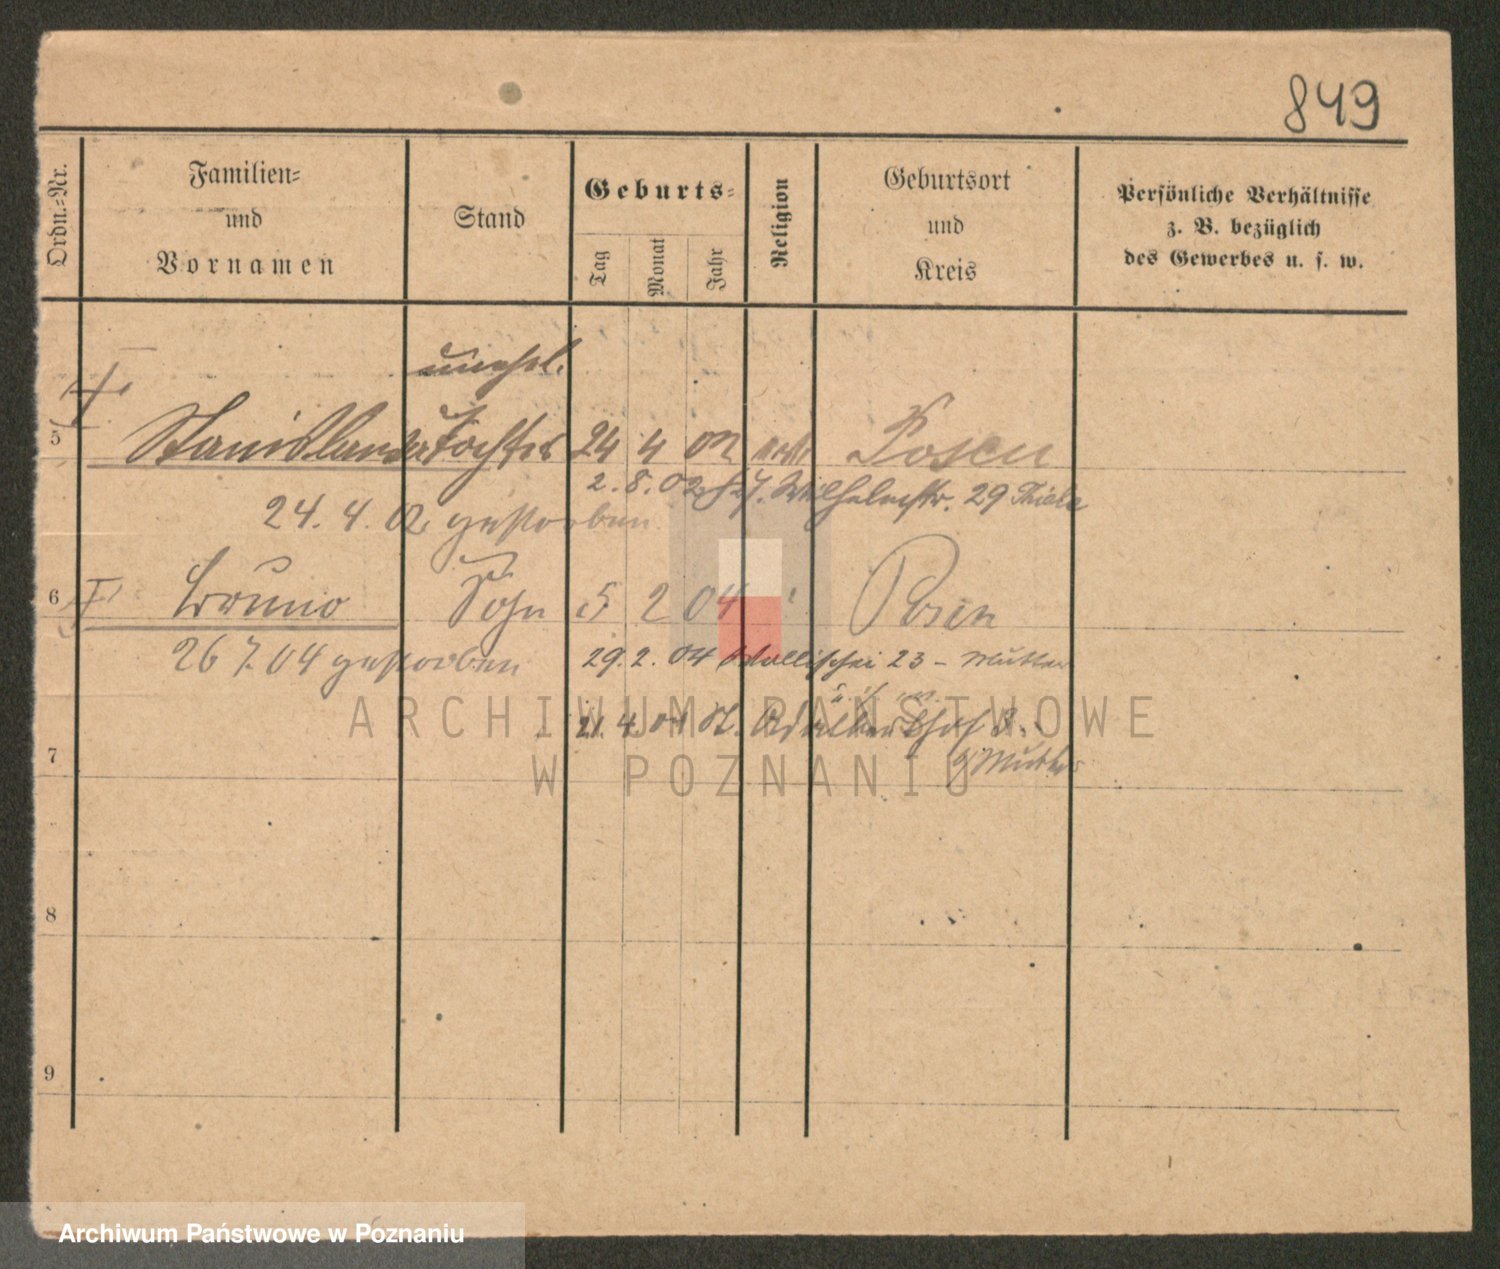 849
Ordn.-Nr.
Familien-
und
Vornamen
Stand
Geburts-
Tag
Monat
Jahr
Religion
Geburtsort
und
Kreis
Persönliche Verhältnisse
z. B. bezüglich
des Gewerbes u. s. w.
unehel.
5 Stanislawa Tochter 24 4 02 kath Posen
2. 8. 02 Wilhelmstr. 29
24. 4. 02 gestorben
6 Bruno Sohn 5 2 04 Posen
26 7. 04 gestorben 29. 2. 04 Wallischei 23 - Mutter
21. 4. 04 St. Adalberthof 3.
b/ Mutter
7
8
9
ARCHIWUM PAŃSTWOWE
W POZNANIU
Archiwum Państwowe w Poznaniu